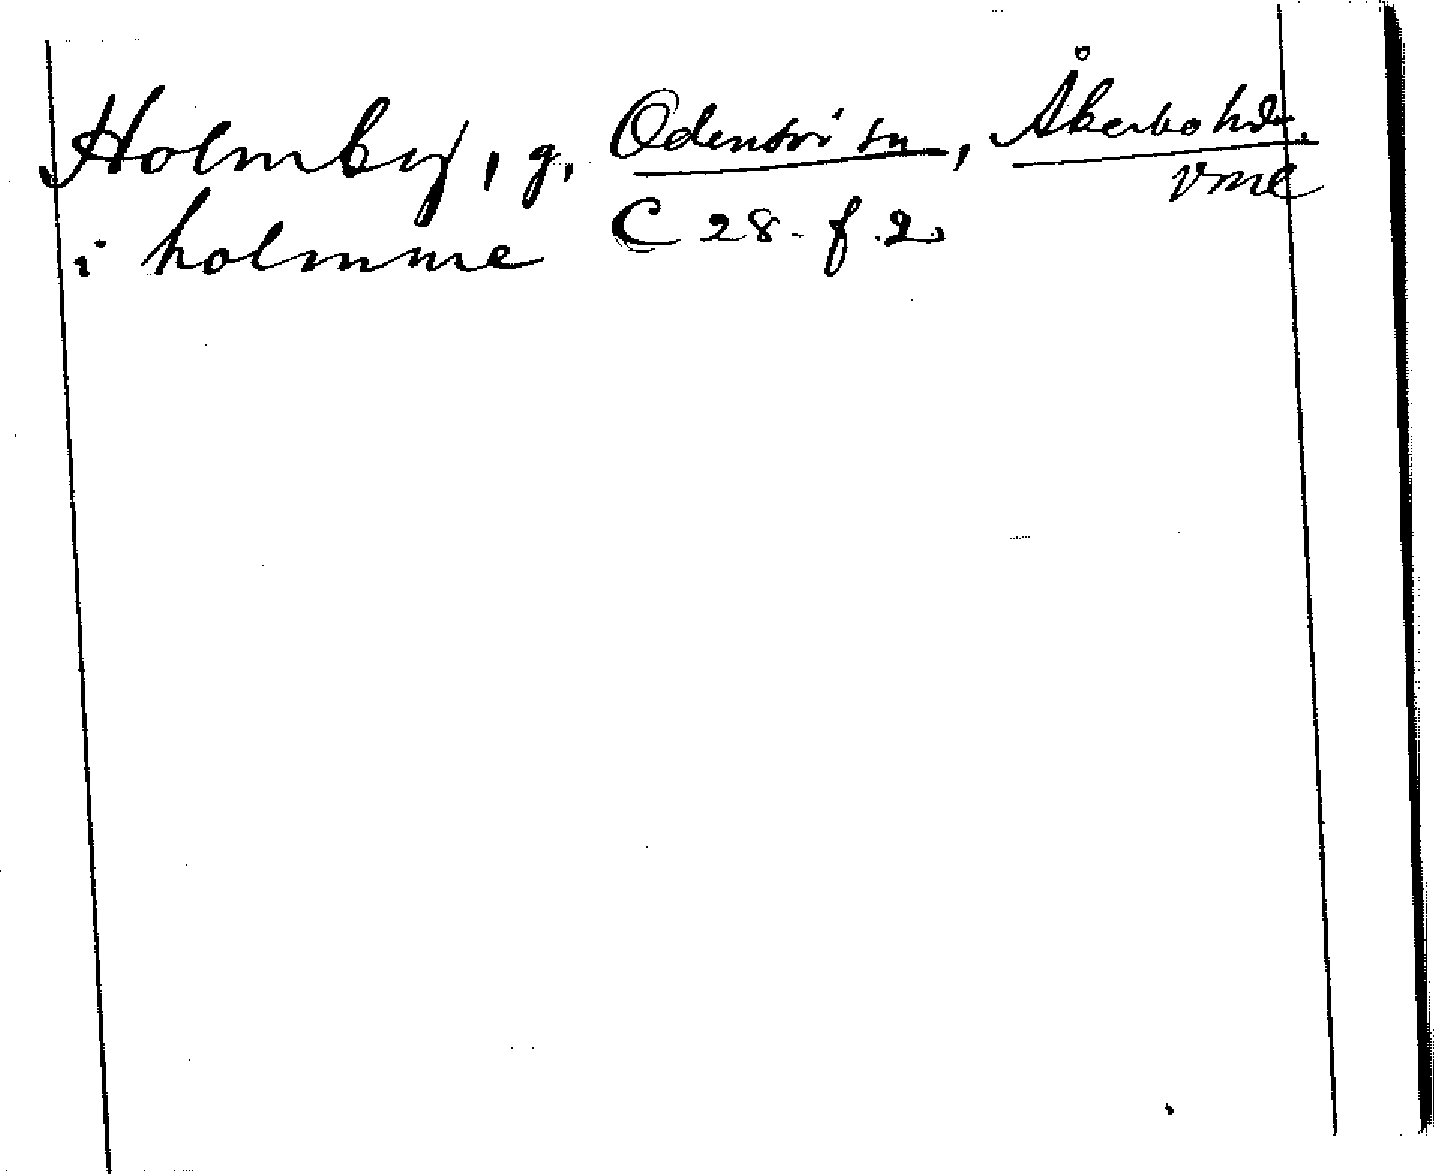 Holmby, g. Odensvi sn, Åkerbo hd.
Vml
i holmme C 28 f. 2